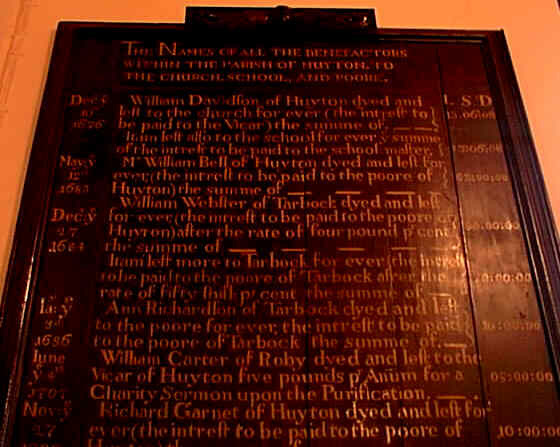 THE NAMES OF ALL THE BENEFACTORS
WITHIN THE PARISH OF HUYTON, TO
THE CHURCH, SCHOOL, AND POORE.
L S D
Dec:y William Davidson, of Huyton dyed and
left to the church for ever (the intrest to
1676 be paid to the Vicar) the summe of
Itam left also to the school for ever y summe
of the intrest to be paid to the school
May:y Mr William Bell of Huyton dyed and left for
12th ever, (the intrest to be paid to the poore of
1683 Huyton) the summe of
Dec:y William Webster of Tarbock dyed and left
27 for ever (the intrest to be paid to the poore of
Huyton) after the rate of four pound p cent
1684 the summe of
Itam left more to Tarbock for ever (the intrest
to be paid to the poore of Tarbock after the
rate of fifty shills pr cent the summe of
Ia:y Ann Richardson of Tarbock dyed and left
3d to the poore for ever, the intrest to be paid 10:00:00
1686 to the poore of Tarbock the summe of
June William Carter of Roby dyed and left to the
Vicar of Huyton five pounds pr Anum for a 05:00:00
1707 Charity Sermon upon the Purification.
Nov:y Richard Garnet of Huyton dyed and left for
27 ever (the intrest to be paid to the poore of 10:00:00